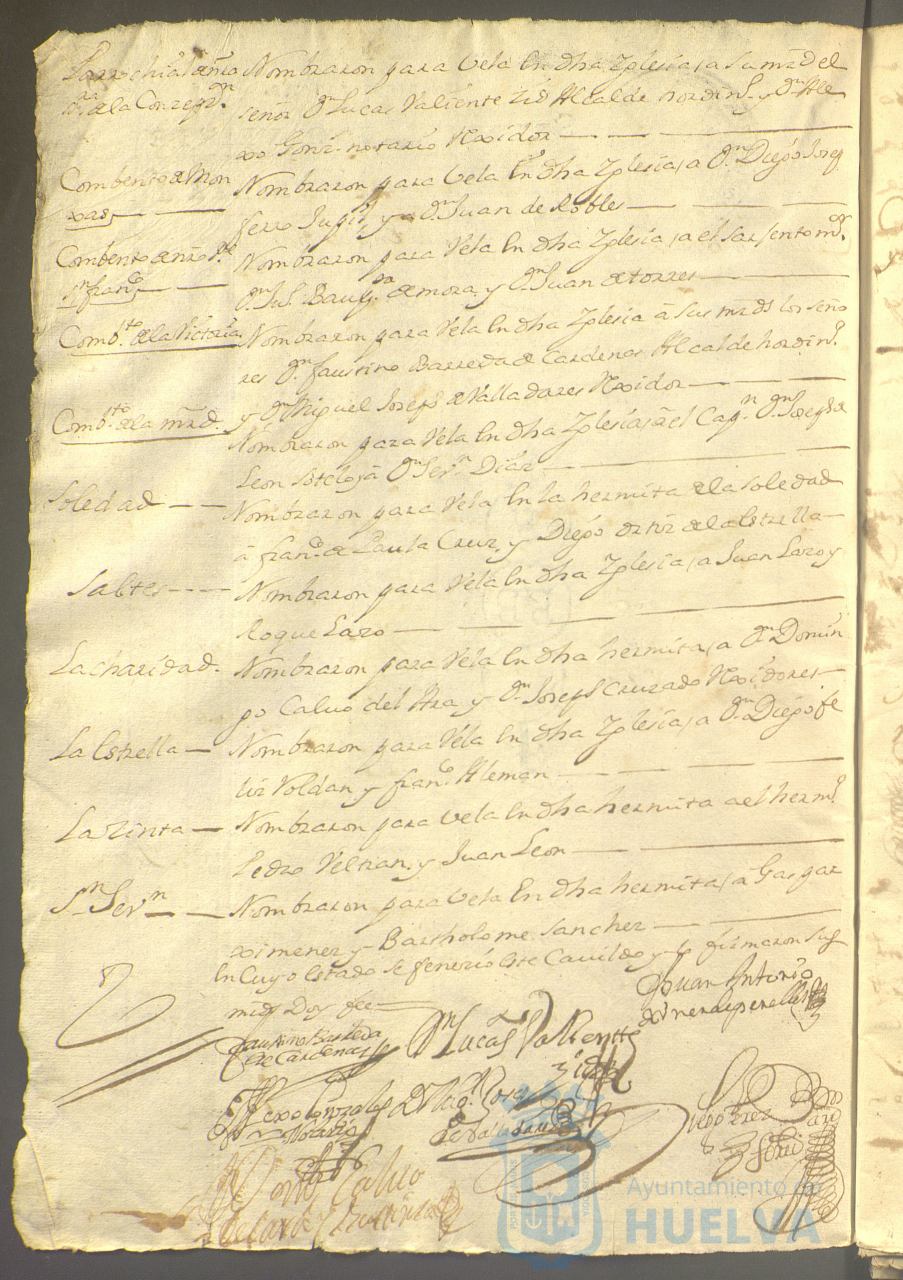 Parrochia de nra Nombraron para Vela En dha Yglesia, a Su md el
sra. de la Conzepon. señor Dn Lucas Valiente Alcalde hordino. y Dn Ale
xo Gonz. notario Rexidor
Combento de Mon Nombraron para Vela En dha Yglesia, a Dn Diego Joseph
xas y Dn Juan de Robles
Combento de nro Pe. Nombraron para Vela En dha Yglesia, a el Sarjento mor.
Sn franco. Dn Bauta. de mora, y Dn Juan de torres
Combto. de la Victoria Nombraron para Vela En dha Yglesia â Sus mrds los seño
res Dn faustino Barreda de Cardenas Alcalde hordino.
y Dn Miguel Joseph de Valladares Rexidor
Combto. de la mrd. Nombraron para Vela En dha Yglesia, a el Capn. Dn Joseph de
Leon Sotelo, ja Dn Sevn. Diaz
Soledad Nombraron para Vela En la hermita de la Soledad
â franco. de Paula Cruz, y Diego ortiz de la Estrella
Saltes Nombraron para Vela En dha Yglesia, a Juan Lazo y
Roque Lazo
La charidad. Nombraron para Vela En dha hermita, a Dn Domin
go Calvo del Ara y Dn Joseph Cruzado Rexidores
La Estrella Nombraron para Vela En dha Yglesia, a Dn Diego fe
liz Roldan y franco. Aleman
La Zinta Nombraron para Vela En dha hermita a el hermo.
Pedro Veltran. y Juan Leon
Sn Sevn Nombraron para Vela En dha hermita, a Gaspar
ximenez y Bartholome Sanchez
En Cuyo Estado Se fenezio este Cavildo y lo firmaron Sus
mrds Doy fee
Juan Antonio
Faustino Barreda
de Cardenas
Dn Lucas Valiente
Alexo Gonzales
Notario
Dn Migl. Joseph
de Valladares
Calvo
Ayuntamiento de
HUELVA